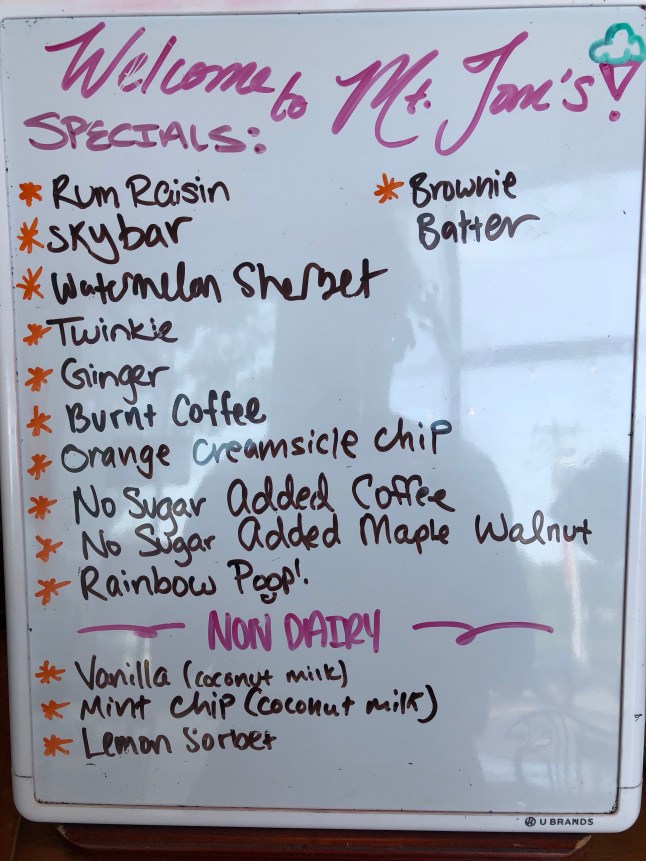 Welcome to Mt. Tom's!
SPECIALS:
* Rum Raisin
* Skybar
* Watermelon Sherbet
* Twinkie
* Ginger
* Burnt Coffee
* Orange Creamsicle Chip
* No Sugar Added Coffee
* No Sugar Added Maple Walnut
* Rainbow Poop!
* Brownie
Batter
NON DAIRY
* Vanilla (coconut milk)
* Mint Chip (coconut milk)
* Lemon Sorbet
U BRANDS